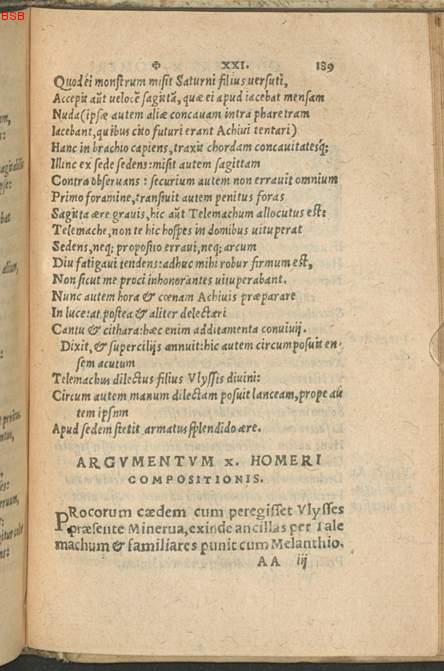 BSB
✠ XXI. 189
Quod ei monstrum misit Saturni filius versuti,
Accepit aūt velocē sagittā, quæ ei apud iacebat mensam
Nuda (ipsæ autem aliæ concauam intra pharetram
Iacebant, quibus cito futuri erant Achiui tentari)
Hanc in brachio capiens, traxit chordam concauitatesq́;
Illinc ex sede sedens: misit autem sagittam
Contra obseruans : securium autem non errauit omnium
Primo foramine, transiuit autem penitus foras
Sagitta ære grauis, hic aūt Telemachum allocutus est:
Telemache, non te hic hospes in domibus vituperat
Sedens, neq; proposito erraui, neq; arcum
Diu fatigaui tendens: adhuc mihi robur firmum est,
Non sicut me proci inhonorantes vituperabant.
Nunc autem hora & cœnam Achiuis præparare
In luce: at postea & aliter delectari
Cantu & cithara: hæc enim additamenta conuiuij.
Dixit, & supercilijs annuit: hic autem circumposuit en-
sem acutum
Telemachus dilectus filius Vlyssis diuini:
Circum autem manum dilectam posuit lanceam, prope aū
tem ipsum
Apud sedem stetit armatus splendido ære.
ARGVMENTVM x. HOMERI
COMPOSITIONIS.
PRocorum cædem cum peregisset Vlysses
præsente Minerua, exinde ancillas per Tale
machum & familiares punit cum Melanthio.
AA iij